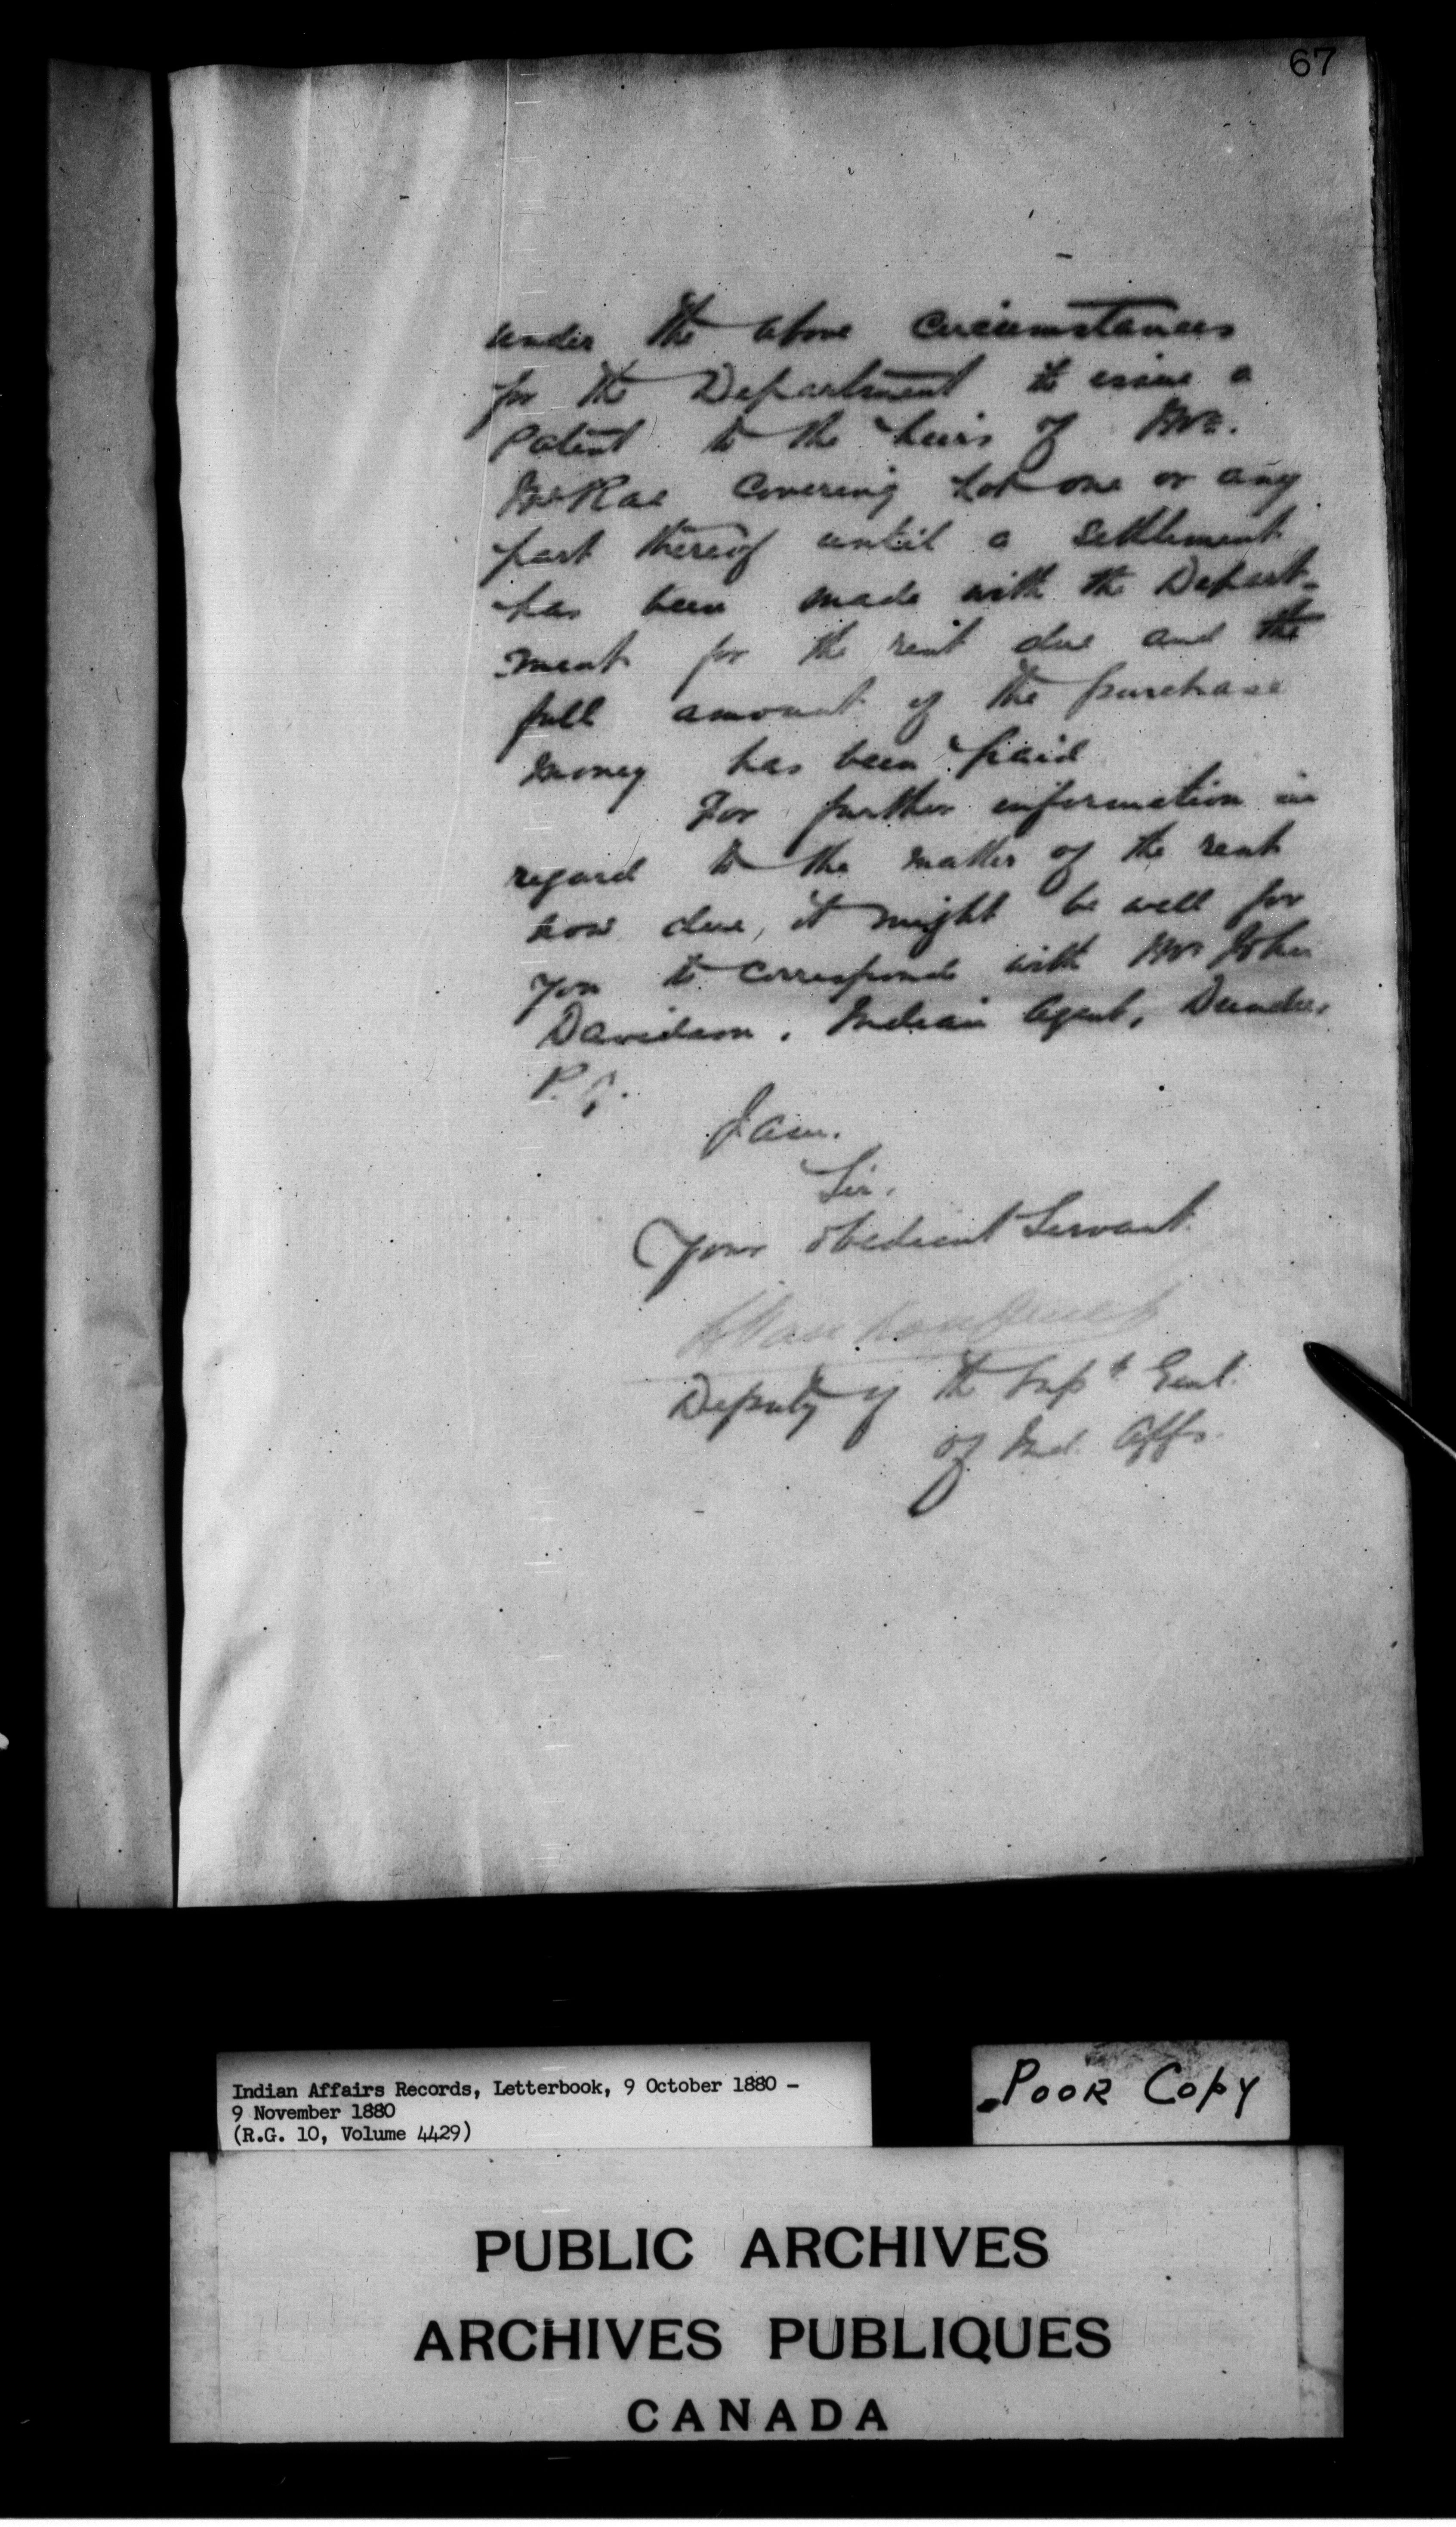 67
under the above circumstances
for the Department to issue a
Patent to the heirs of Mr.
McRae covering Lot one or any
part thereof until a settlement
has been made with the Depart-
ment for the rent due and the
full amount of the purchase
money has been paid
For further information in
regard to the matter of the rent
now due, it might be well for
you to correspond with Mr John
Davidson, Indian Agent, Dundee,
P.Q.
I am.
Sir,
Your obedient Servant
L Vankoughnet
Deputy of the Supt Genl.
of Ind. Affs.
Indian Affairs Records, Letterbook, 9 October 1880 -
9 November 1880
(R.G. 10, Volume 4429)
POOR COPY
PUBLIC ARCHIVES
ARCHIVES PUBLIQUES
CANADA